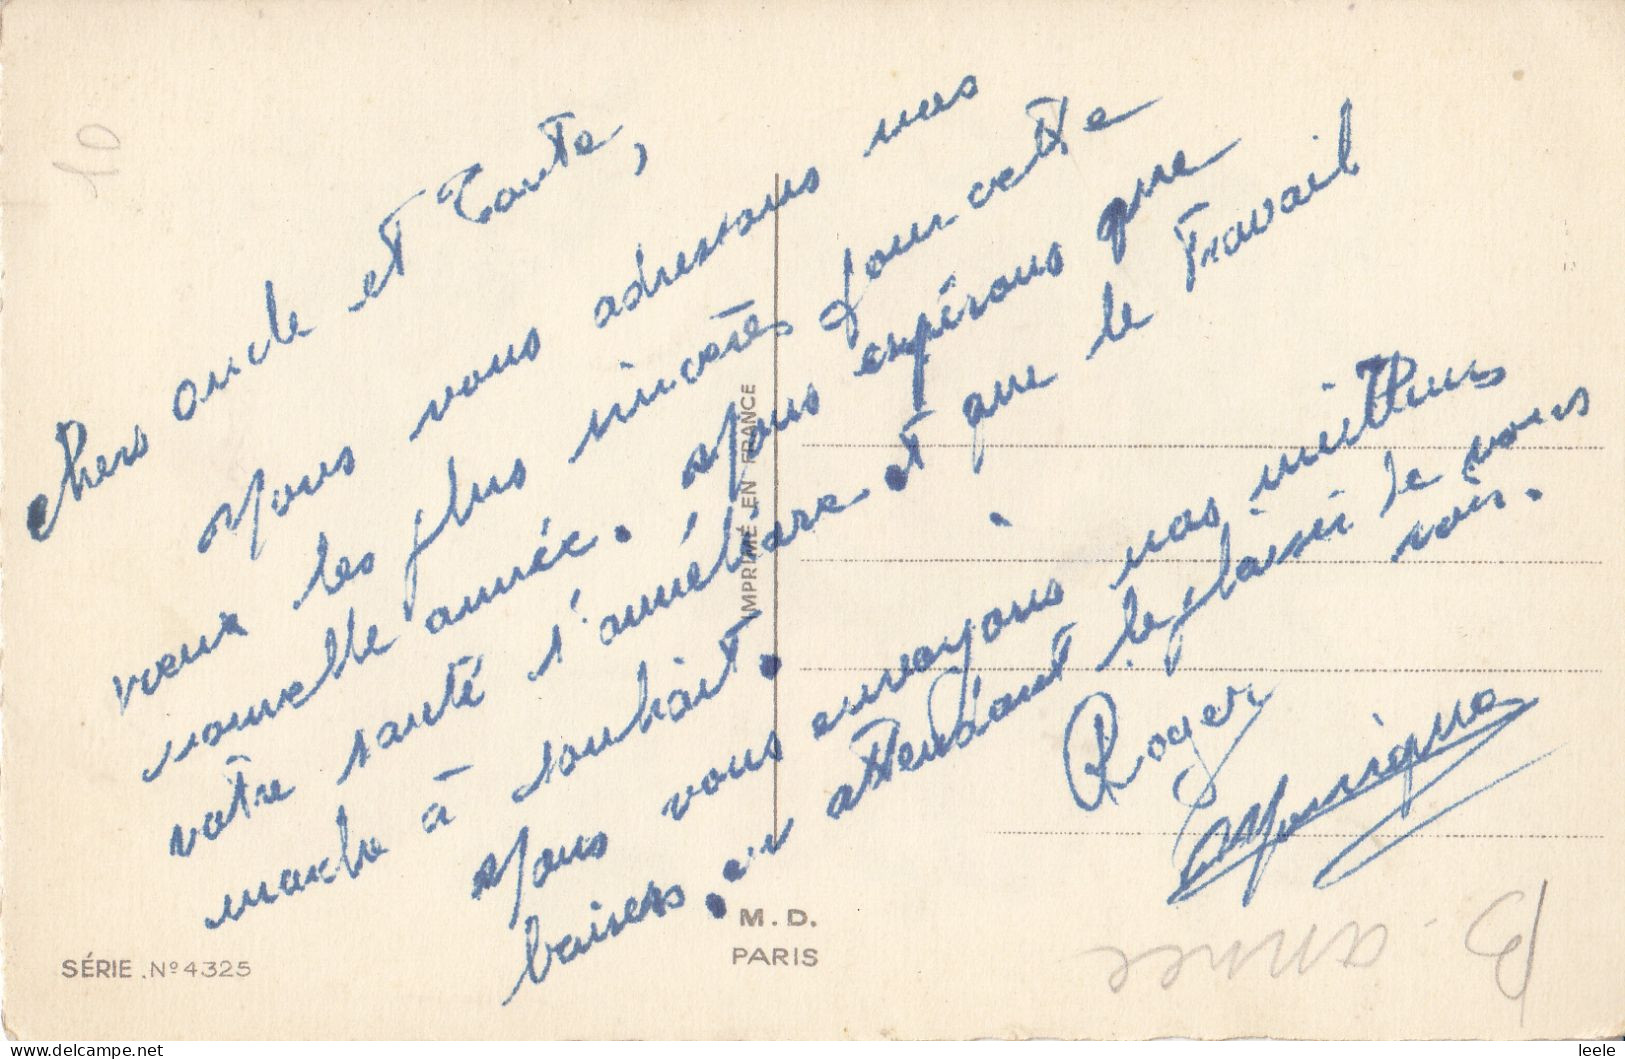 Chers oncle et Tante,
Nous vous adressons nos
vœux les plus sincères pour cette
nouvelle année. Nous espérons que
votre santé s'améliore et que le travail
marche à souhait.
Nous vous envoyons nos meilleurs
baisers, en attendant le plaisir de vous
voir.
Roger
Monique
IMPRIMÉ EN FRANCE
M.D.
PARIS
SÉRIE Nº 4325
10
B. annee
www.delcampe.net
leele